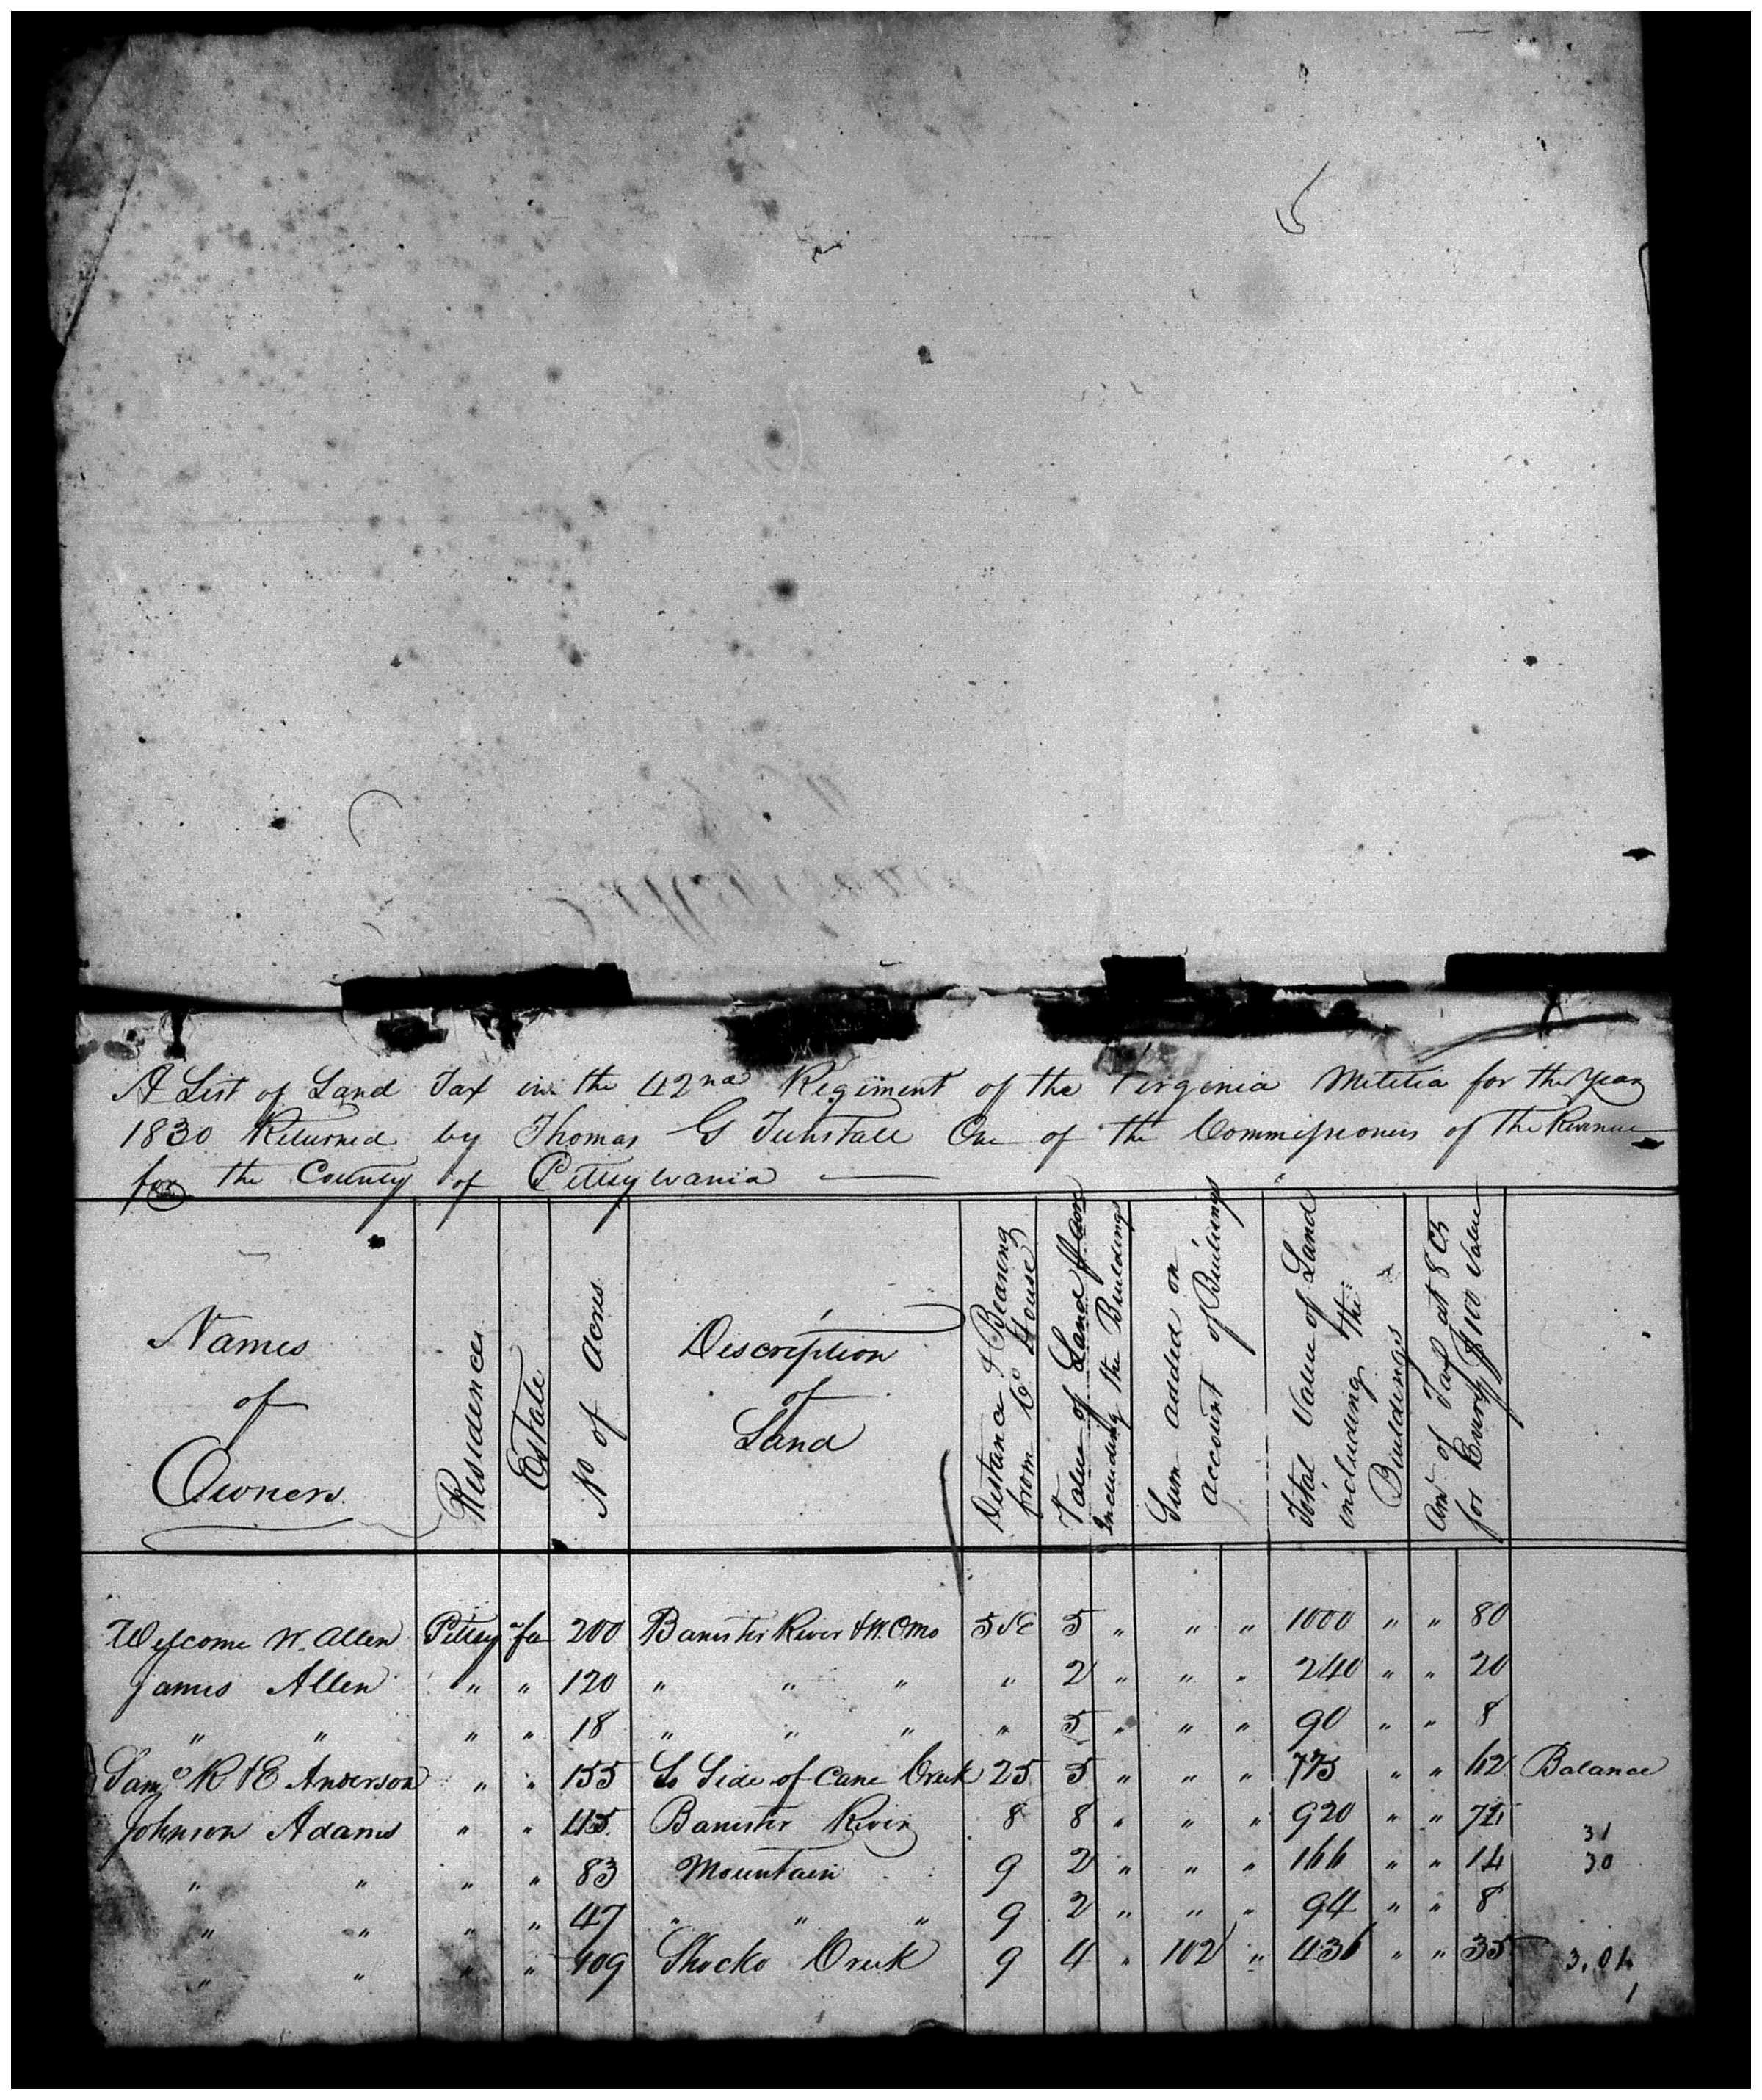 A List of Land Tax in the 42nd Regiment of the Virginia Militia for the Year
1830 Returned by Thomas G Tunstall One of the Commissioners of the Revenue
for the County of Pittsylvania
Names of Owners
Residence
Estate
No of acres
Description of Land
Distance & Bearing from Ct House
Value of Land pr acre Including the Buildings
Sum added on account of Buildings
Total Value of Land including the Buildings
Amt of Tax at 8 Cts for Every $100 Value
Welcome W. Allen Pittsy fee 200 Banister River & W. O. Mo 5 NE 5 " " " 1000 " " 80
James Allen " " 120 " " " " 2 " " " 240 " " 20
" " " " 18 " " " " 5 " " " 90 " " 8
Saml R & E Anderson " " 155 So Side of Cane Creek 25 5 " " " 775 " " 62 Balance
Johnson Adams " " 115 Banister River 8 8 " " " 920 " " 74
" " " " 83 Mountain 9 2 " " " 166 " " 14
" " " " 47 " " " 9 2 " " " 94 " " 8
" " " " 109 Shocko Creek 9 4 " 102 " 436 " " 35
31
30
3.01
1